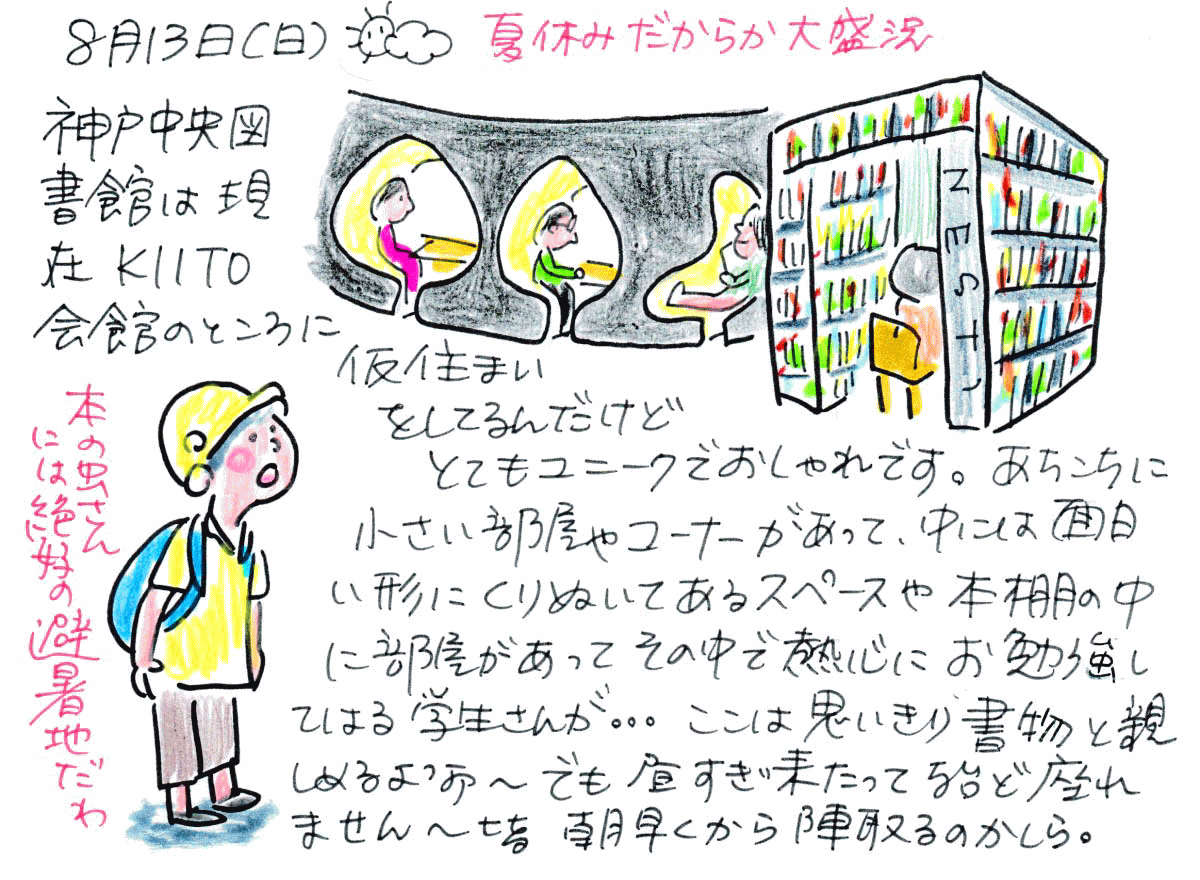 8月13日(日)
夏休みだからか大盛況
神戸中央図
書館は現
在 KIITO
会館のところに
仮住まい
をしてるんだけど
とてもユニークでおしゃれです。あちこちに
小さい部屋やコーナーがあって、中には面白
い形にくりぬいてあるスペースや本棚の中
に部屋があってその中で熱心にお勉強し
てはる学生さんが… ここは思いきり書物と親
しめるよう〜でも昼すぎ来たって殆ど座れ
ません〜皆朝早くから陣取るのかしら。
NEST
本の虫さん
には絶好の避暑地だわ